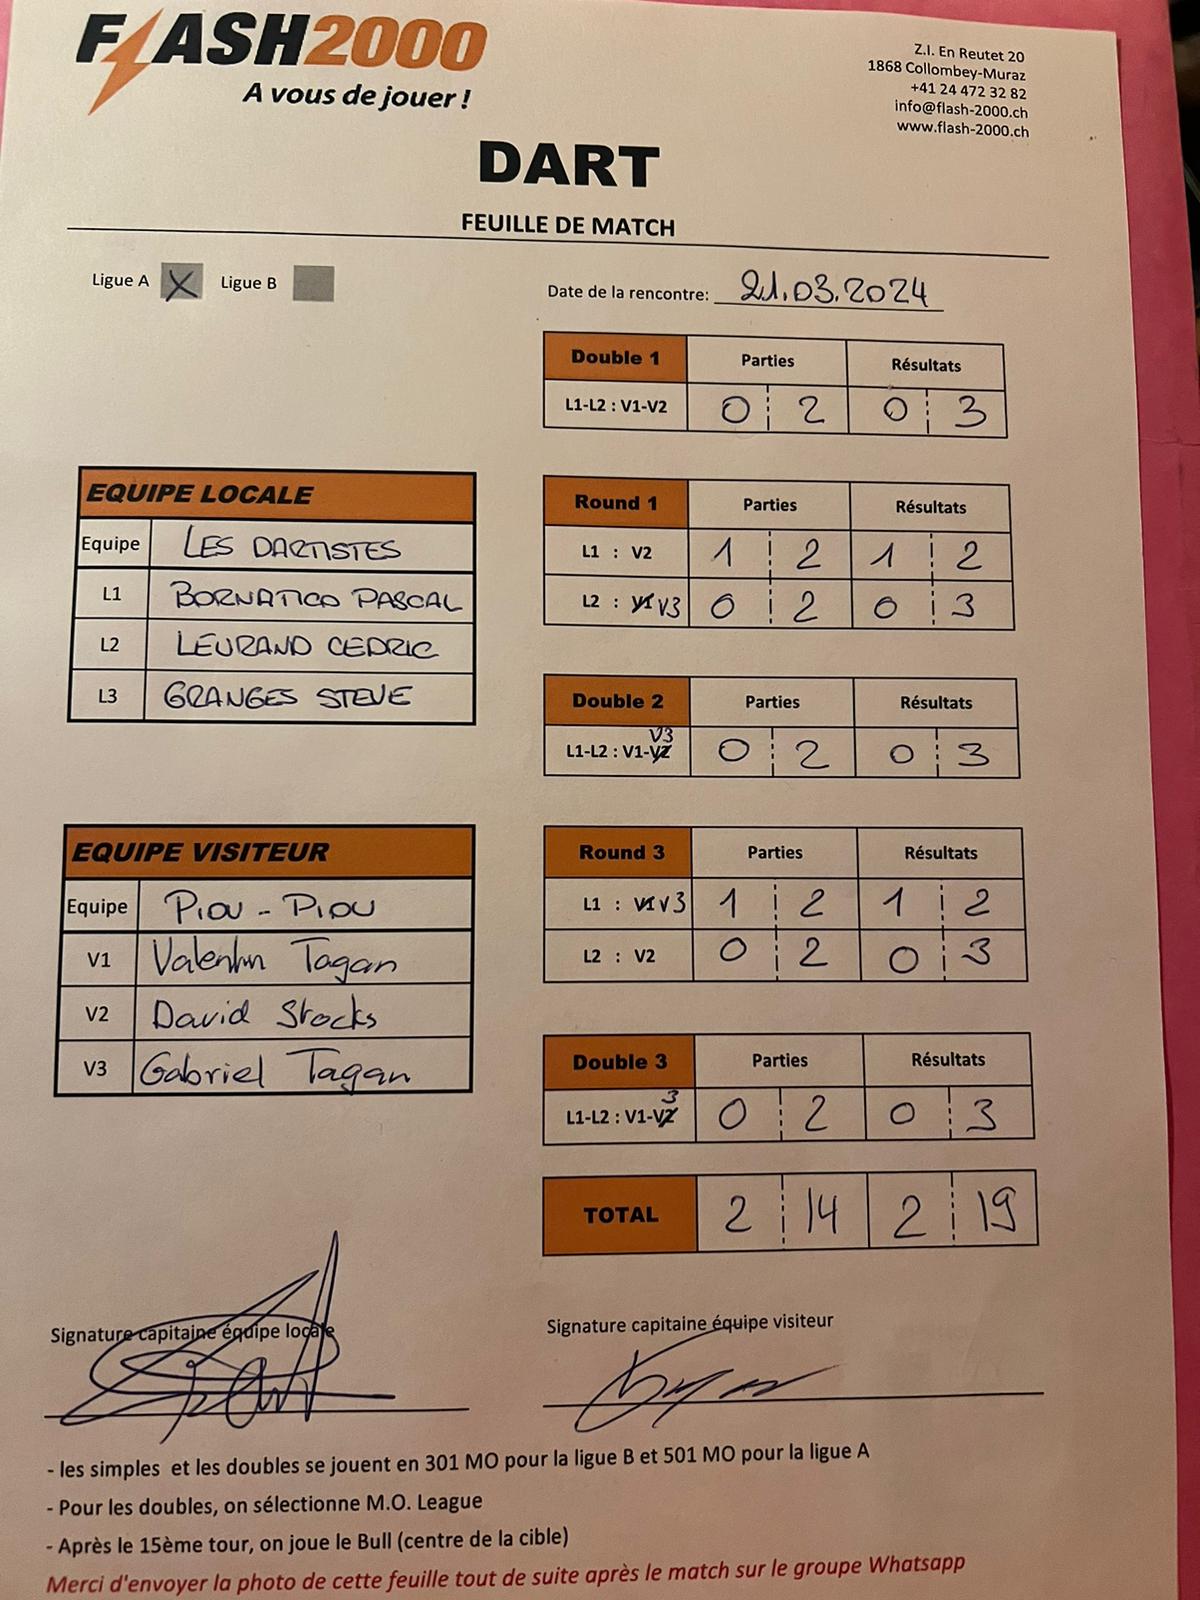 FLASH2000
A vous de jouer !
Z.I. En Reutet 20
1868 Collombey-Muraz
+41 24 472 32 82
info@flash-2000.ch
www.flash-2000.ch
DART
FEUILLE DE MATCH
Ligue A X Ligue B
Date de la rencontre: 21.03.2024
Double 1 Parties Résultats
L1-L2 : V1-V2 0 2 0 3
EQUIPE LOCALE
Equipe LES DARTISTES
L1 BORNATICO PASCAL
L2 LEURAND CEDRIC
L3 GRANGES STEVE
Round 1 Parties Résultats
L1 : V2 1 2 1 2
L2 : V1 V3 0 2 0 3
Double 2 Parties Résultats
V3
L1-L2 : V1-V2 0 2 0 3
EQUIPE VISITEUR
Equipe PIOU - PIOU
V1 Valentin Tagan
V2 David Stocks
V3 Gabriel Tagan
Round 3 Parties Résultats
L1 : V1 V3 1 2 1 2
L2 : V2 0 2 0 3
Double 3 Parties Résultats
3
L1-L2 : V1-V2 0 2 0 3
TOTAL 2 14 2 19
Signature capitaine équipe locale
Signature capitaine équipe visiteur
- les simples et les doubles se jouent en 301 MO pour la ligue B et 501 MO pour la ligue A
- Pour les doubles, on sélectionne M.O. League
- Après le 15ème tour, on joue le Bull (centre de la cible)
Merci d'envoyer la photo de cette feuille tout de suite après le match sur le groupe Whatsapp